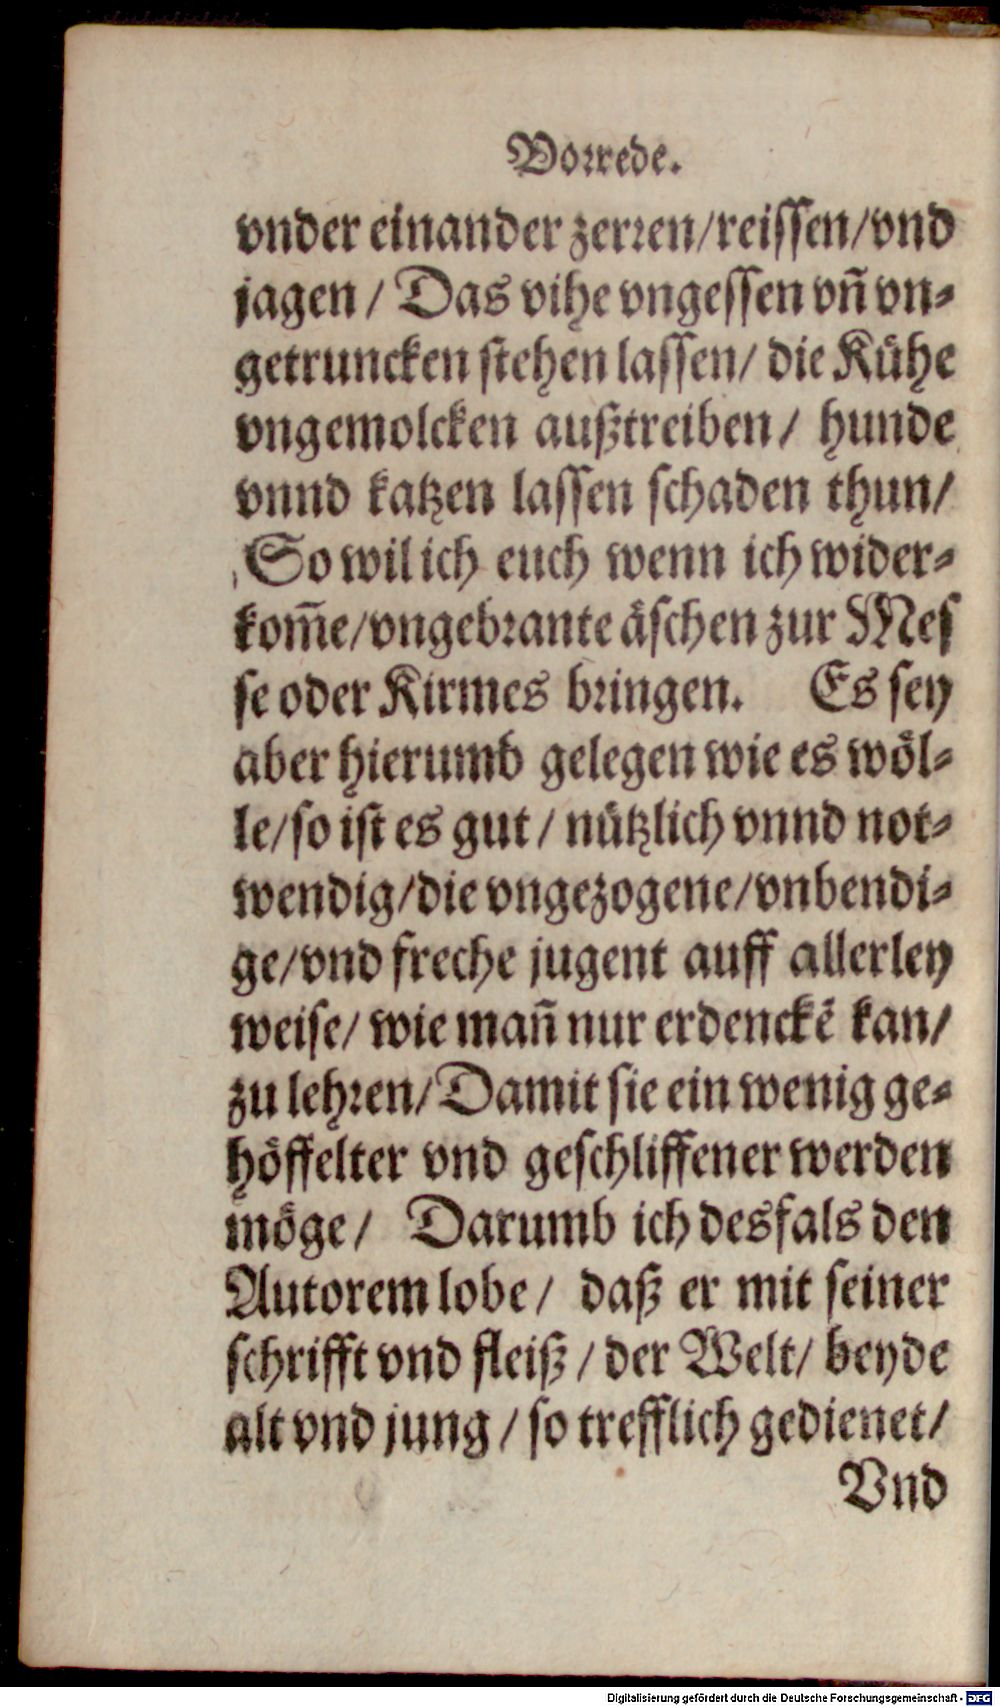 Vorrede.
vnder einander zerren/reissen/vnd
jagen / Das vihe vngessen vn̄ vn-
getruncken stehen lassen/ die Kühe
vngemolcken außtreiben / hunde
vnnd katzen lassen schaden thun/
So wil ich euch wenn ich wider-
kom̄e/vngebrante äschen zur Mes
se oder Kirmes bringen. Es sey
aber hierumb gelegen wie es wöl-
le/so ist es gut / nützlich vnnd not-
wendig/die vngezogene/vnbendi-
ge/vnd freche jugent auff allerley
weise/ wie man̄ nur erdenckē kan/
zu lehren/Damit sie ein wenig ge-
höffelter vnd geschliffener werden
möge / Darumb ich desfals den
Autorem lobe / daß er mit seiner
schrifft vnd fleiß / der Welt/ beyde
alt vnd jung / so trefflich gedienet/
Vnd
Digitalisierung gefördert durch die Deutsche Forschungsgemeinschaft - DFG